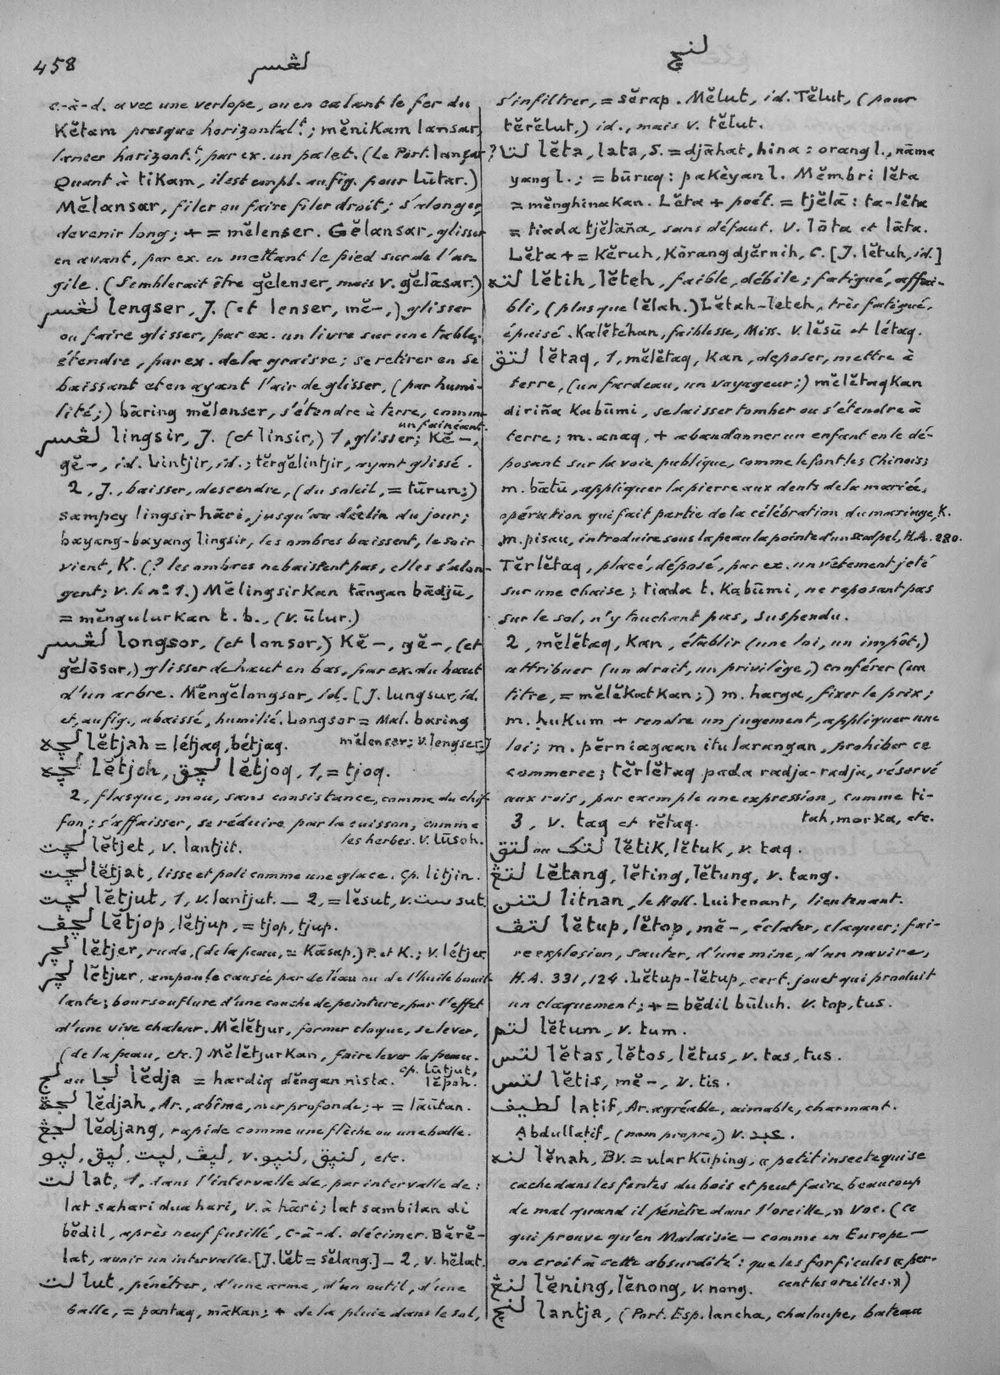 458
لڠسر
لنچ
c.-à-d. avec une verlope, ou en calant le fer du
Kĕtam presque horizontal.t; mĕnikam lansar,
lancer horizont.t, par ex. un palet. (Le Port. lançar?
Quant à tikam, il est empl. au fig. pour lūtar.)
Mĕlansar, filer ou faire filer droit; s'alonger,
devenir long; + = mĕlenser. Gĕlansar, glisser
en avant, par ex. en mettant le pied sur de l'ar-
gile. (Semblerait être gĕlenser, mais v. gĕlāsar.)
لڠسر lengser, J. (et lenser, mĕ-,) glisser
ou faire glisser, par ex. un livre sur une table;
étendre, par ex. de la graisse; se retirer en se
baissant et en ayant l'air de glisser, (par humi-
lité;) bāring mĕlenser, s'étendre à terre, comme
un fainéant.
لڠسر lingsir, J. (et linsir,) 1, glisser; Kĕ-,
gĕ-, id. Lintjir, id.; tĕrgĕlintjir, ayant glissé.
2, J., baisser, descendre, (du soleil, = tūrun;)
sampey lingsir hāri, jusqu'au déclin du jour;
bayang-bayang lingsir, les ombres baissent, le soir
vient, K. (? les ombres ne baissent pas, elles s'alon-
gent; v. le n° 1.) Mĕlingsirkan tāngan bādjū,
= mĕngulurkan t. b., (v. ūlur.)
لڠسر longsor, (et lonsor,) Kĕ-, gĕ-, (et
gĕlōsor,) glisser de haut en bas, par ex. du haut
d'un arbre. Mĕngĕlongsor, id. [J. lungsur, id.
et, au fig., abaissé, humilié. Longsor = Mal. baring
mĕlenser; v. lengser.]
لچه lĕtjah = létjaq, bétjaq.
لچه Lĕtjoh, لچق lĕtjoq, 1, = tjoq.
2, flasque, mou, sans consistance, comme du chif-
fon; s'affaisser, se réduire par la cuisson, comme
les herbes. v. lūsoh.
لچت lĕtjet, v. lantjit.
لچت lĕtjat, lisse et poli comme une glace. Cp. litjin.
لچت lĕtjut, 1, v. lantjut. — 2, = lĕsut, v. ست sut.
لچڤ Lĕtjop, lĕtjup, = tjop, tjup.
لچر lĕtjer, rude, (de la peau, = Kāsap.) P. et K.; v. létjer.
لچر lĕtjur, ampoule causée par de l'eau ou de l'huile bouil-
lante; boursouflure d'une couche de peinture, par l'effet
d'une vive chaleur. Mĕlĕtjur, former cloque, se lever,
(de la peau, etc.) Mĕlĕtjurkan, faire lever la peau.
cp. Lūtjut, lĕpoh.
لج ou لجا lĕdja = hardiq dĕngan nista.
لجه lĕdjah, Ar., abîme, mer profonde; + = lāūtan.
لجڠ lĕdjang, rapide comme une flèche ou une balle.
لپو, لپق, لپت, لپڤ, v. لنپو, لنپق, etc.
لت lat, 1, dans l'intervalle de, par intervalle de:
lat sahari dua hari, v. à hāri; lat sambilan di
bĕdil, après neuf fusillé, c.-à-d. décimer. Bĕrĕ-
lat, avoir un intervalle. [J. lĕt = sĕlang.] — 2, v. hĕlat.
لت lut, pénétrer, d'une arme, d'un outil, d'une
balle, = pantaq, mākan; + de la pluie dans le sol,
s'infiltrer, = sĕrap. Mĕlut, id. Tĕlut, (pour
tĕrĕlut,) id., mais v. tĕlut.
لتا lĕta, lata, S. = djāhat, hina: orang l., nāma
yang l.; = būruq: pakèyan l. Mĕmbri lĕta
= mĕnghinakan. Lĕta + poét. = tjĕlā: ta-lĕta
= tiada tjĕlāña, sans défaut. V. lōta et lāta.
Lĕta + = Kĕruh, Kōrang djĕrnih, C. [J. lĕtuh, id.]
لته lĕtih, lĕteh, faible, débile; fatigué, affai-
bli, (plus que lĕlah.) Lĕtah-leteh, très fatigué,
épuisé. Kalĕtĕhan, faiblesse, Miss. V. lĕsū et létaq.
لتق lĕtaq, 1, mĕlĕtaq, Kan, déposer, mettre à
terre, (un fardeau, un voyageur;) mĕlĕtaqkan
diriña Kabūmi, se laisser tomber ou s'étendre à
terre; m. anaq, + abandonner un enfant en le dé-
posant sur la voie publique, comme le font les Chinois;
m. bātū, appliquer la pierre aux dents de la mariée,
opération qui fait partie de la célébration du mariage, K.
m. pisau, introduire sous la peau la pointe d'un scalpel, H.A. 280.
Tĕrlĕtaq, placé, déposé, par ex. un vêtement jeté
sur une chaise; tiada t. Kabūmi, ne reposant pas
sur le sol, n'y touchant pas, suspendu.
2, mĕlĕtaq, Kan, établir (une loi, un impôt,)
attribuer (un droit, un privilège,) conférer (un
titre, = mĕlĕkatkan;) m. harga, fixer le prix;
m. hukum + rendre un jugement, appliquer une
loi; m. pĕrniagaan itu larangan, prohiber ce
commerce; tĕrlĕtaq pada radja-radja, réservé
aux rois, par exemple une expression, comme ti-
tah, morka, etc.
3, v. taq et rĕtaq.
لتق ou لتک lĕtik, lĕtuk, v. taq.
لتڠ Lĕtang, lĕting, lĕtung, v. tang.
لتنن litnan, le Holl. Luitenant, lieutenant.
لتڤ lĕtup, lĕtop, mĕ-, éclater, claquer; fai-
re explosion, sauter, d'une mine, d'un navire,
H.A. 331, 124. Lĕtup-lĕtup, cert. jouet qui produit
un claquement; + = bĕdil būluh. V. top, tus.
لتم lĕtum, v. tum.
لتس lĕtas, lĕtos, lĕtus, v. tas, tus.
لتس lĕtis, mĕ-, v. tis.
لطيف laṭif, Ar. agréable, aimable, charmant.
Abdullaṭif, (nom propre,) v. عبد.
لنه lĕnah, BV. = ular Kūping, « petit insecte qui se
cache dans les fentes du bois et peut faire beaucoup
de mal quand il pénètre dans l'oreille, » Voc. (Ce
qui prouve qu'en Malaisie — comme en Europe —
on croit à cette absurdité: que les forficules « per-
cent les oreilles. »)
لنڠ lĕning, lĕnong, v. nong.
لنچ lantja, (Port. Esp. lancha, chaloupe, bateau